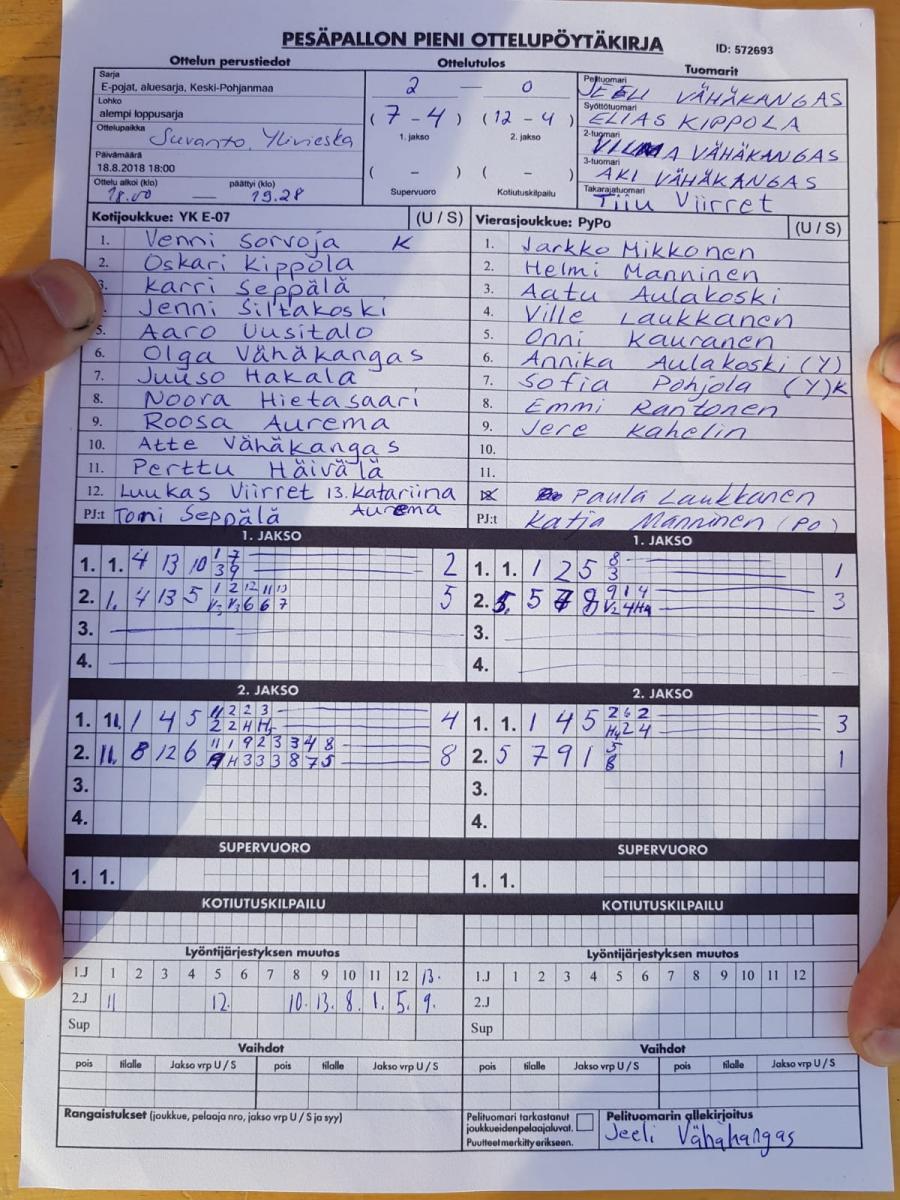 PESÄPALLON PIENI OTTELUPÖYTÄKIRJA
ID: 572693
Ottelun perustiedot
Ottelutulos
Tuomarit
Sarja
E-pojat, aluesarja, Keski-Pohjanmaa
Lohko
alempi loppusarja
Ottelupaikka
Suvanto, Ylivieska
Päivämäärä
18.8.2018 18:00
Ottelu alkoi (klo) päättyi (klo)
18.00 — 19.28
2 — 0
( 7 - 4 ) ( 12 - 4 )
1. jakso 2. jakso
( - ) ( - )
Supervuoro Kotiutuskilpailu
Pelituomari
JEELI VÄHÄKANGAS
Syöttötuomari
ELIAS KIPPOLA
2-tuomari
VILMA VÄHÄKANGAS
3-tuomari
AKI VÄHÄKANGAS
Takarajatuomari
Tiiu Viirret
Kotijoukkue: YK E-07 (U / S)
1. Venni Sorvoja K
2. Oskari Kippola
3. Karri Seppälä
Jenni Siltakoski
5. Aaro Uusitalo
6. Olga Vähäkangas
7. Juuso Hakala
8. Noora Hietasaari
9. Roosa Aurema
10. Atte Vähäkangas
11. Perttu Häivälä
12. Luukas Viirret 13. Katariina
Aurema
PJ:t Tomi Seppälä
Vierasjoukkue: PyPo (U / S)
1. Jarkko Mikkonen
2. Helmi Manninen
3. Aatu Aulakoski
4. Ville Laukkanen
5. Onni Kauranen
6. Annika Aulakoski (Y)
7. Sofia Pohjola (Y)K
8. Emmi Rantonen
9. Jere Kahelin
10.
11.
Paula Laukkanen
PJ:t Katja Manninen (PO)
1. JAKSO
1. 1. 4 13 10 1 7 2
3 9
2. 1. 4 13 5 1 2 12 11 13 5
V3 V3 6 6 7
3.
4.
1. JAKSO
1. 1. 1 2 5 8 1
3
2. 5. 5 8 9 1 4 3
V2 4 H4
3.
4.
2. JAKSO
1. 11. 1 4 5 11 2 2 3 4
2 2 4 H5
2. 11. 8 12 6 11 1 9 2 3 3 4 8 8
H 3 3 3 8 7 5
3.
4.
2. JAKSO
1. 1. 1 4 5 2 6 2 3
H4 2 4
2. 5 7 9 1 5 1
8
3.
4.
SUPERVUORO
1. 1.
SUPERVUORO
1. 1.
KOTIUTUSKILPAILU
KOTIUTUSKILPAILU
Lyöntijärjestyksen muutos
1.J 1 2 3 4 5 6 7 8 9 10 11 12 13.
2.J 11 12. 10. 13. 8. 1. 5. 9.
Sup
Lyöntijärjestyksen muutos
1.J 1 2 3 4 5 6 7 8 9 10 11 12
2.J
Sup
Vaihdot
pois tilalle Jakso vrp U / S pois tilalle Jakso vrp U / S
Vaihdot
pois tilalle Jakso vrp U / S pois tilalle Jakso vrp U / S
Rangaistukset (joukkue, pelaaja nro, jakso vrp U / S ja syy)
Pelituomari tarkastanut
joukkueidenpelaajaluvat.
Puutteet merkitty erikseen.
Pelituomarin allekirjoitus
Jeeli Vähäkangas